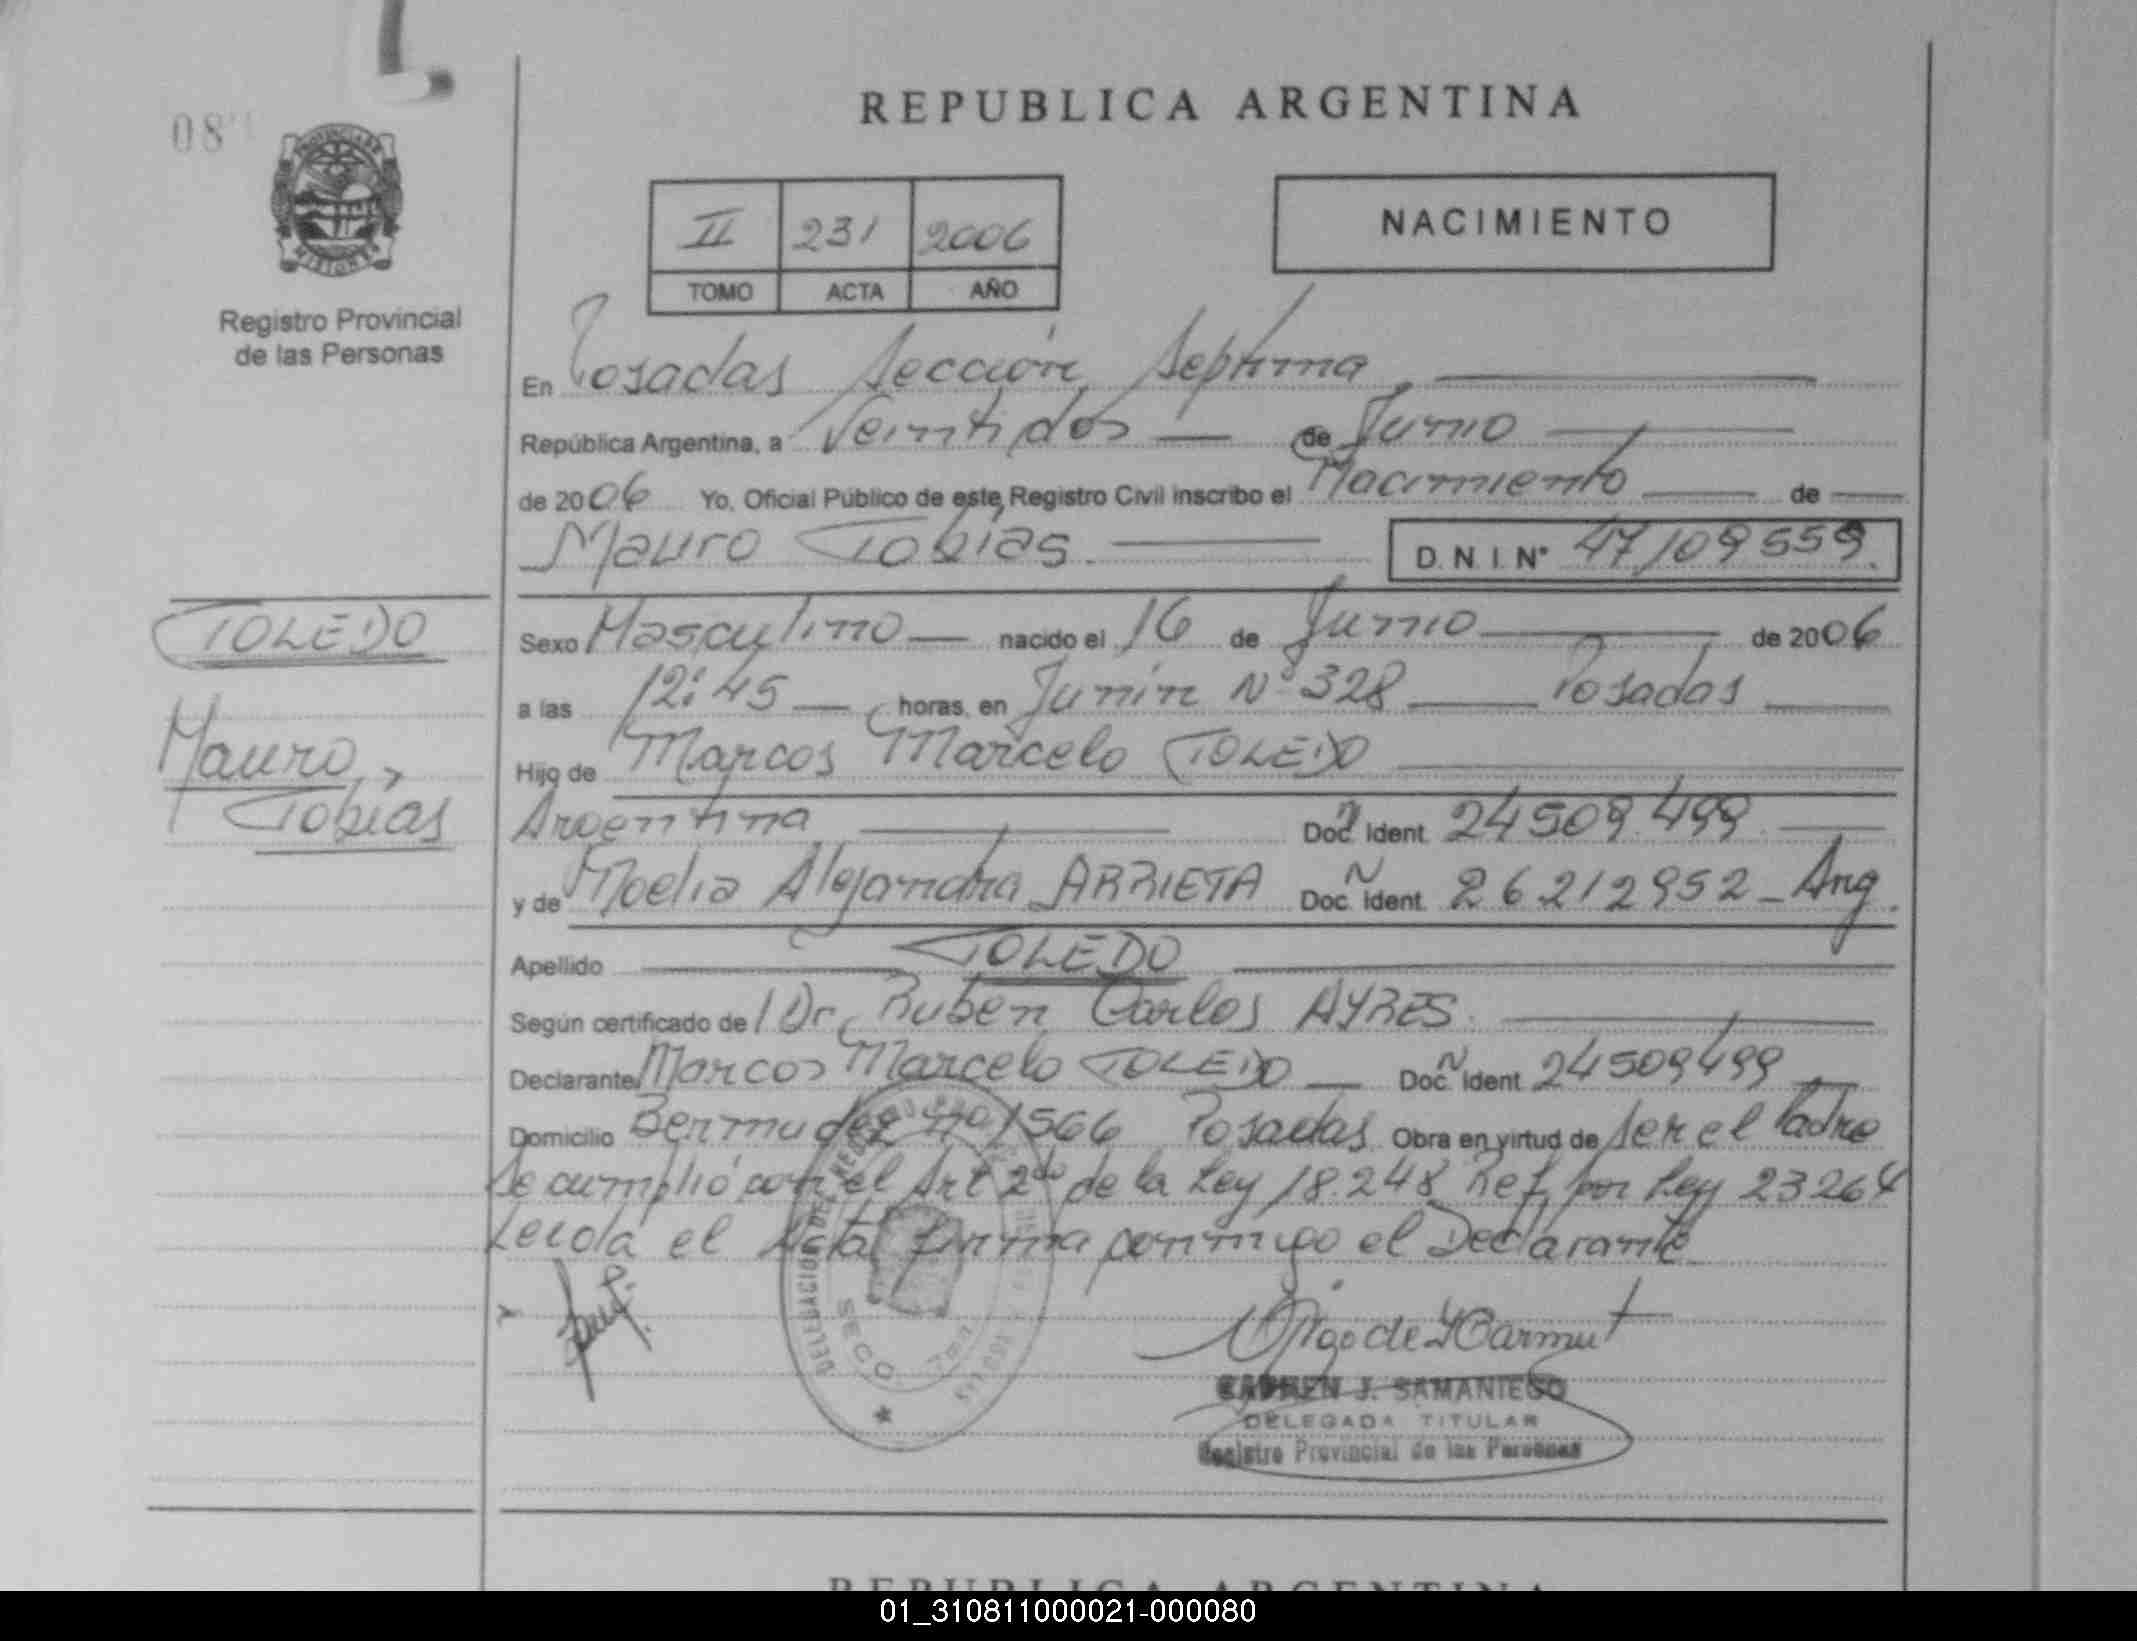 REPUBLICA ARGENTINA
08
PROVINCIA DE MISIONES
Registro Provincial
de las Personas
II 231 2006
TOMO ACTA AÑO
NACIMIENTO
En Posadas Sección Septima
República Argentina, a Veintidos de Junio
de 2006 Yo, Oficial Público de este Registro Civil inscribo el Nacimiento de
Mauro Tobias. D.N.I. Nº 47109559.
TOLEDO
Mauro,
Tobias
Sexo Masculino nacido el 16 de Junio de 2006
a las 12:45 horas, en Junin Nº 328 Posadas
Hijo de Marcos Marcelo TOLEDO
Argentina Doc. Ident. 24509.499
y de Noelia Alejandra ARRIETA Doc. Ident. 26212952 - Arg.
Apellido TOLEDO
Según certificado de Dr. Ruben Carlos AYRES.
Declarante Marcos Marcelo TOLEDO Doc. Ident. 24509499
Domicilio Bermudez nº 1566 Posadas. Obra en virtud de ser el Padre
Se cumplió con el Art 2do de la Ley 18.248 Ref. por Ley 23264
Leida el Acta firma conmigo el Declarante
CARMEN J. SAMANIEGO
DELEGADA TITULAR
Registro Provincial de las Personas
REPUBLICA ARGENTINA
01_310811000021-000080